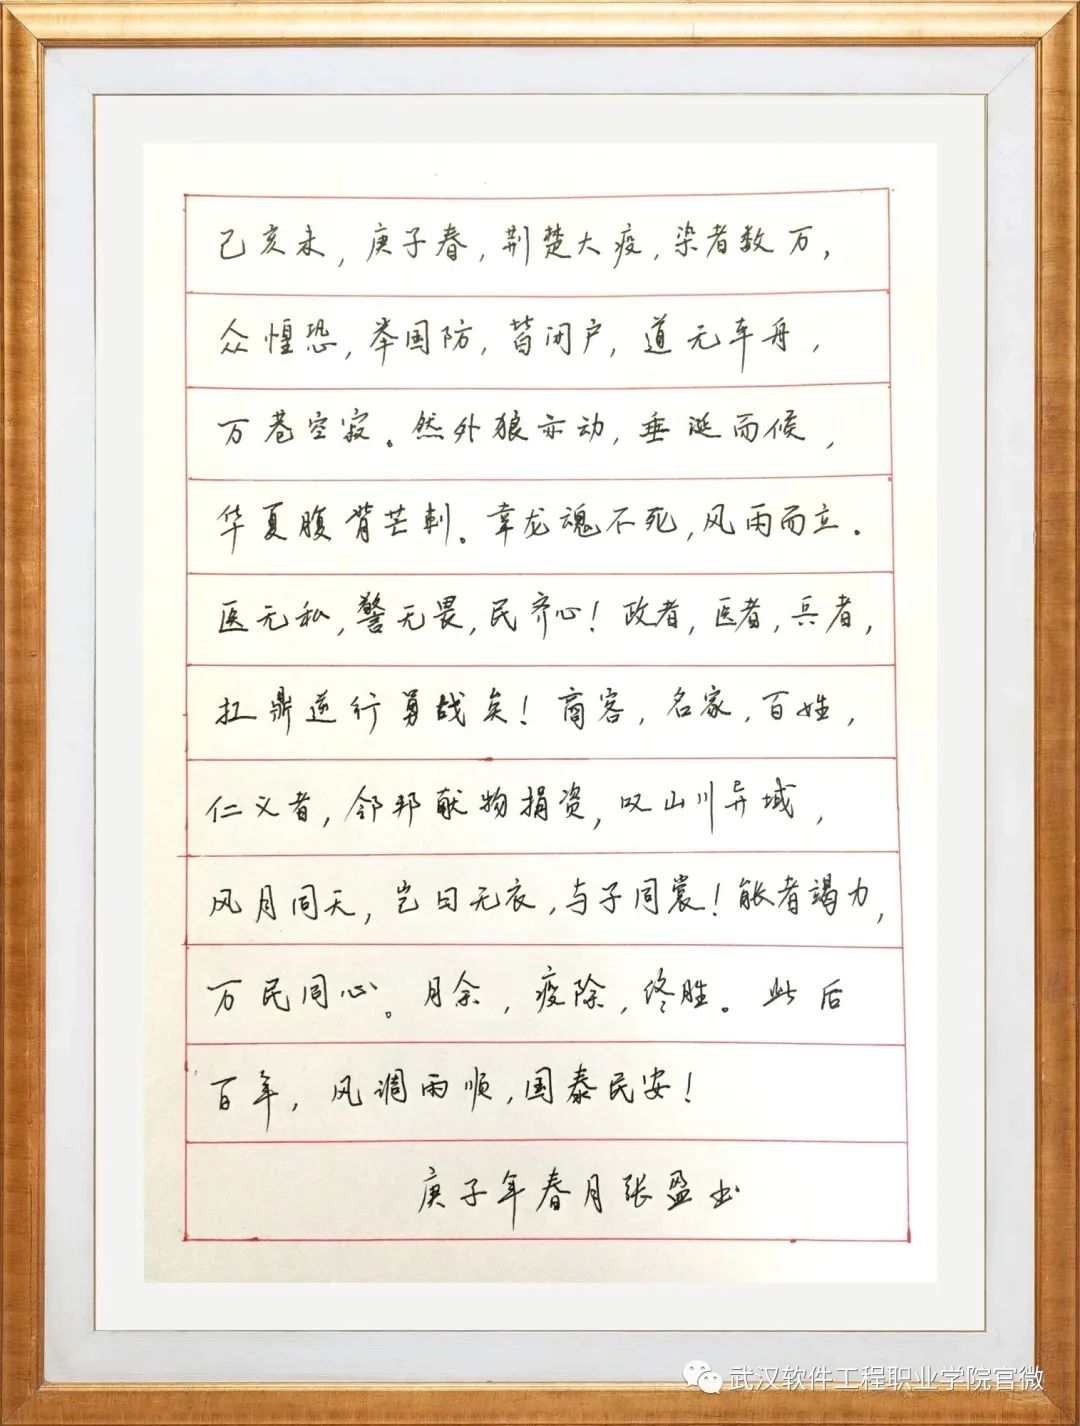 己亥末，庚子春，荆楚大疫，染者数万，
众惶恐，举国防，皆闭户，道无车舟，
万巷空寂。然外狼亦动，垂涎而候，
华夏腹背芒刺。幸龙魂不死，风雨而立。
医无私，警无畏，民齐心！政者，医者，兵者，
扛鼎逆行勇战矣！商客，名家，百姓，
仁义者，邻邦献物捐资，叹山川异域，
风月同天，岂曰无衣，与子同裳！能者竭力，
万民同心。月余，疫除，终胜。此后
百年，风调雨顺，国泰民安！
庚子年春月张盈书
武汉软件工程职业学院官微